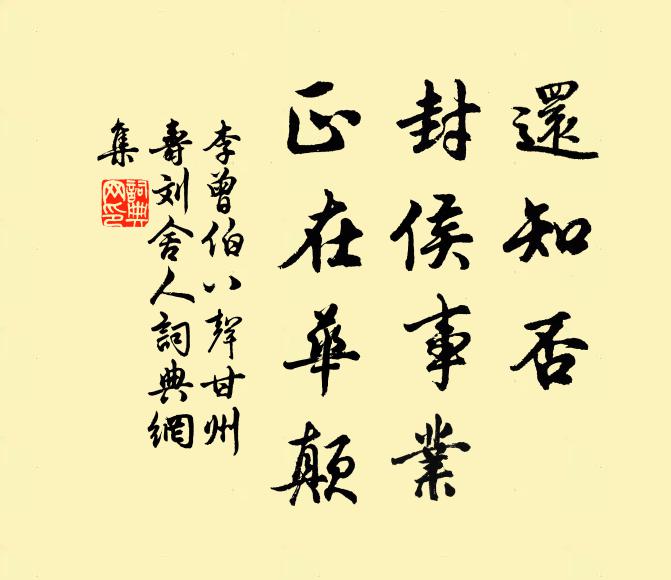 還知否
封侯事業
正在華顛
李曾伯八聲甘州
壽刘舍人詞典網
集
詞典
网印